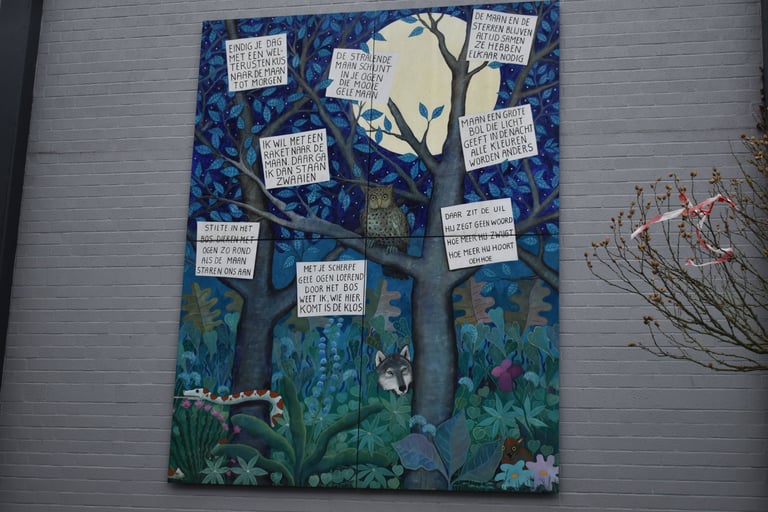 EINDIG JE DAG
MET EEN WEL-
TERUSTEN KUS
NAAR DE MAAN
TOT MORGEN
DE STRALENDE
MAAN SCHIJNT
IN JE OGEN
DIE MOOIE
GELE MAAN
DE MAAN EN DE
STERREN BLIJVEN
ALTIJD SAMEN
ZE HEBBEN
ELKAAR NODIG
IK WIL MET EEN
RAKET NAAR DE
MAAN. DAAR GA
IK DAN STAAN
ZWAAIEN
MAAN EEN GROTE
BOL DIE LICHT
GEEFT IN DE NACHT
ALLE KLEUREN
WORDEN ANDERS
STILTE IN HET
BOS. DIEREN MET
OGEN ZO ROND
ALS DE MAAN
STAREN ONS AAN
DAAR ZIT DE UIL
HIJ ZEGT GEEN WOORD
HOE MEER HIJ ZWIJGT
HOE MEER HIJ HOORT
OEHHOE
MET JE SCHERPE
GELE OGEN LOEREND
DOOR HET BOS
WEET IK, WIE HIER
KOMT IS DE KLOS